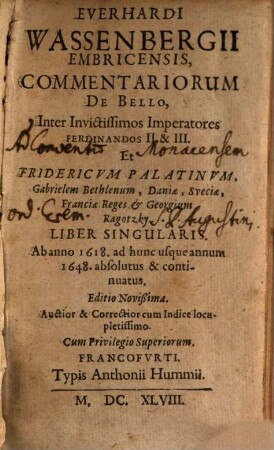 EVERHARDI
WASSENBERGII
EMBRICENSIS,
COMMENTARIORUM
DE BELLO,
Inter Invictissimos Imperatores
FERDINANDOS II. & III.
Ad Conventū Monacensem
Et
FRIDERICVM PALATINVM,
Gabrielem Bethlenum, Daniæ, Sveciæ,
Franciæ Reges & Georgium
ord. Erem. Ragotzky S. P. Augustini
LIBER SINGULARIS.
Ab anno 1618. ad hunc usque annum
1648. absolutus & conti-
nuatus.
Editio Novissima.
Auctior & Correctior cum Indice locu-
pletissimo.
Cum Privilegio Superiorum.
FRANCOFVRTI.
Typis Anthonii Hummii.
M. DC. XLVIII.